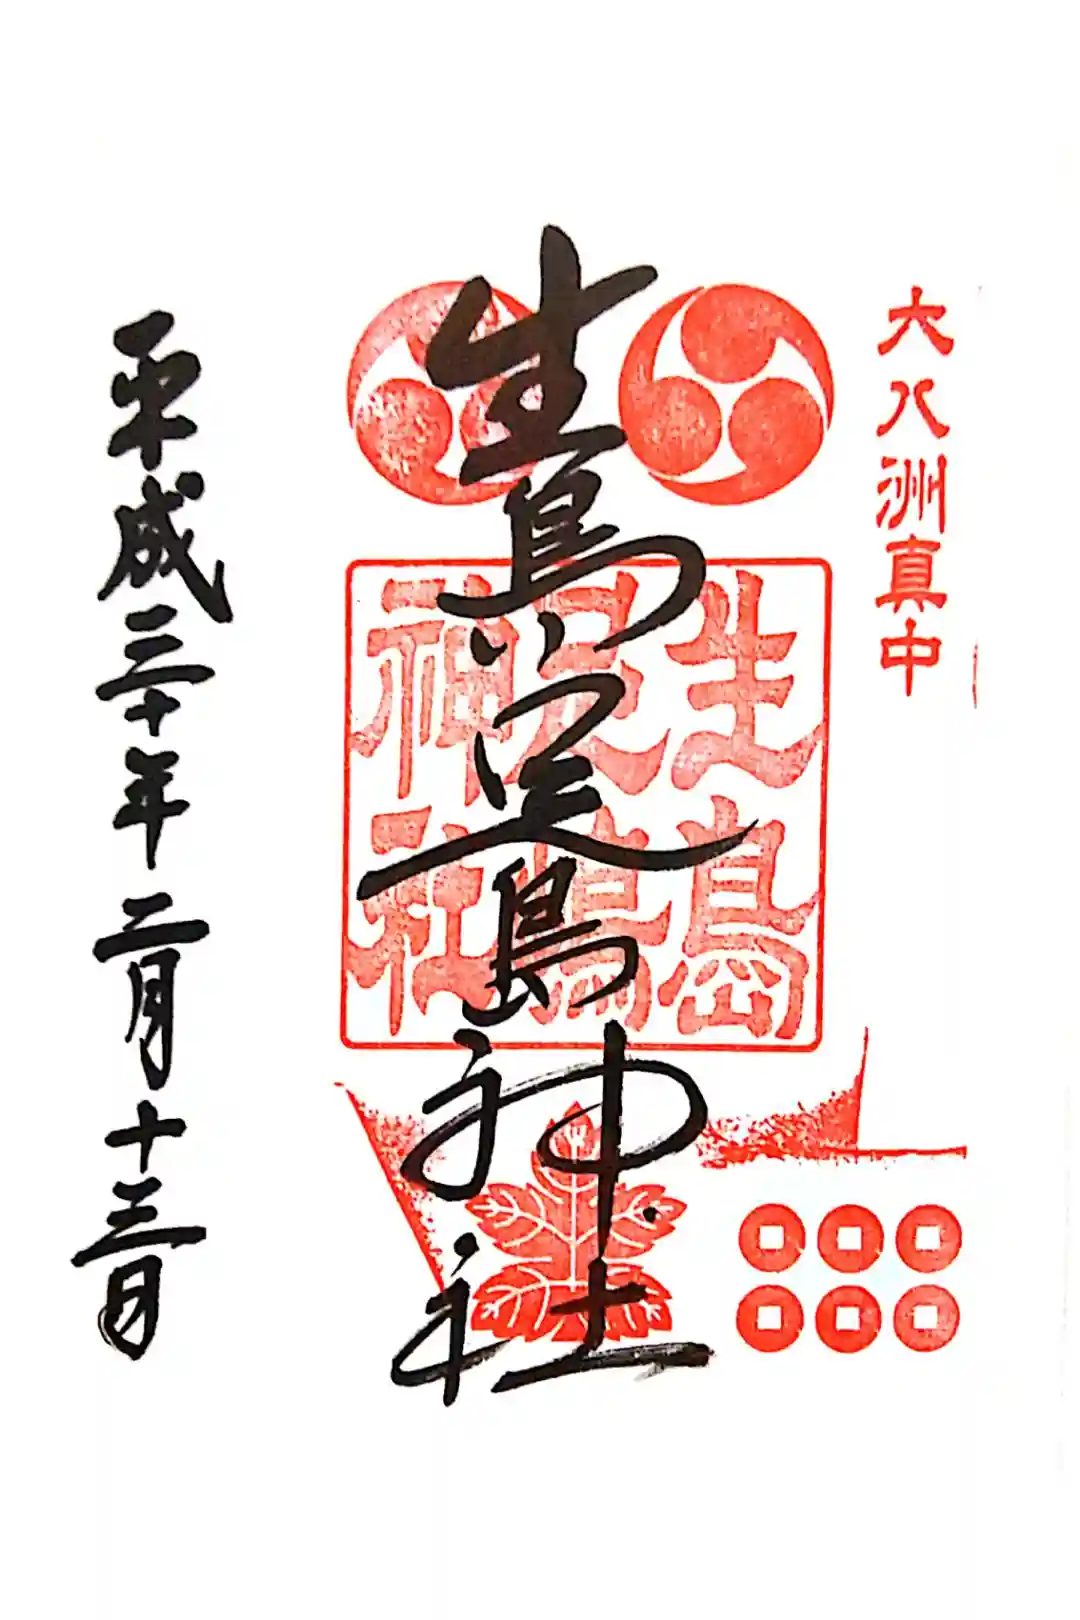 大八洲真中
生島足島神社
生島
足島
神社
平成三十年二月十三日